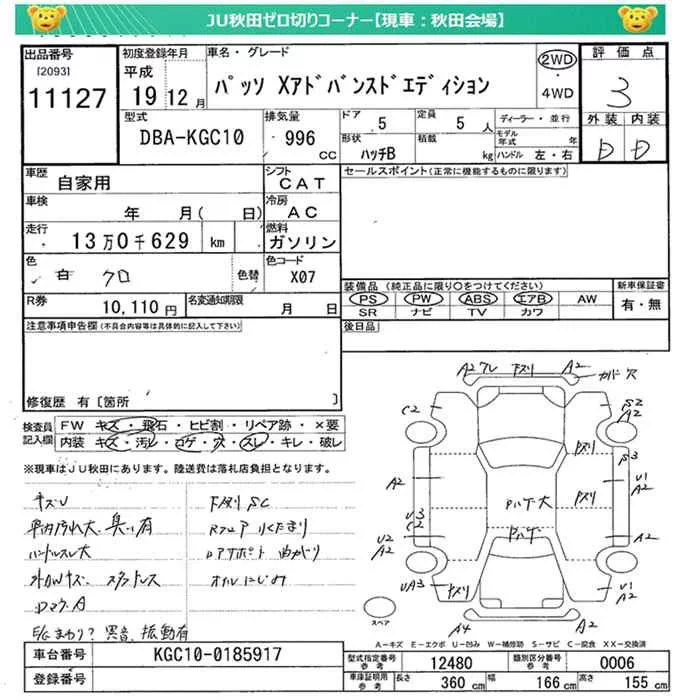 JU秋田ゼロ切りコーナー【現車：秋田会場】
出品番号 初度登録年月 車名・グレード 評価点
[2093] 平成 パッソ Xアドバンスドエディション 2WD ・ 4WD 3
11127 19 12月
型式 排気量 ドア 5 定員 5人 ディーラー・並行 外装 内装
DBA-KGC10 996 CC 形状 ハッチB 積載 kg モデル年式 年 ハンドル 左・右 D D
車歴 自家用 シフト CAT セールスポイント(正常に機能するものに限ります)
車検 年 月( 日) 冷房 AC
走行 13万0千629 km 燃料 ガソリン
色 白 クロ 色替 色コード X07 装備品(純正品に限り○をつけてください) 新車保証書
PS PW ABS エアB AW 有・無
R券 10,110円 名変通知期限 月 日 SR ナビ TV カワ
注意事項申告欄(不具合内容等は具体的に記入して下さい) 後日品
修復歴 有〔箇所 〕
検査員記入欄 FW キズ・飛石・ヒビ割・リペア跡・×要
内装 キズ・汚レ・コゲ・穴・スレ・キレ・破レ
※現車はJU秋田にあります。陸送費は落札店負担となります。
A2 フレ トスリ A2 カバー穴
C2 S2 A2
トスリ S3
A2 Pハゲ大 トスリ U1 A2
U3 C2
U2 A2 Pハゲ A2
UA3 トスリ U1 A2
A4 A2
スペア
キズU 下廻りSC
車内汚れ大、臭い有
ハンドルスレ大
オイルにじみ
異音、振動有
A－キズ E－エクボ U－凹み W－補修跡 S－サビ C－腐食 XX－交換済
車台番号 KGC10-0185917 型式指定番号 参考 12480 類別区分番号 参考 0006
登録番号 車庫証明用 参考 長さ 360 cm 幅 166 cm 高さ 155 cm